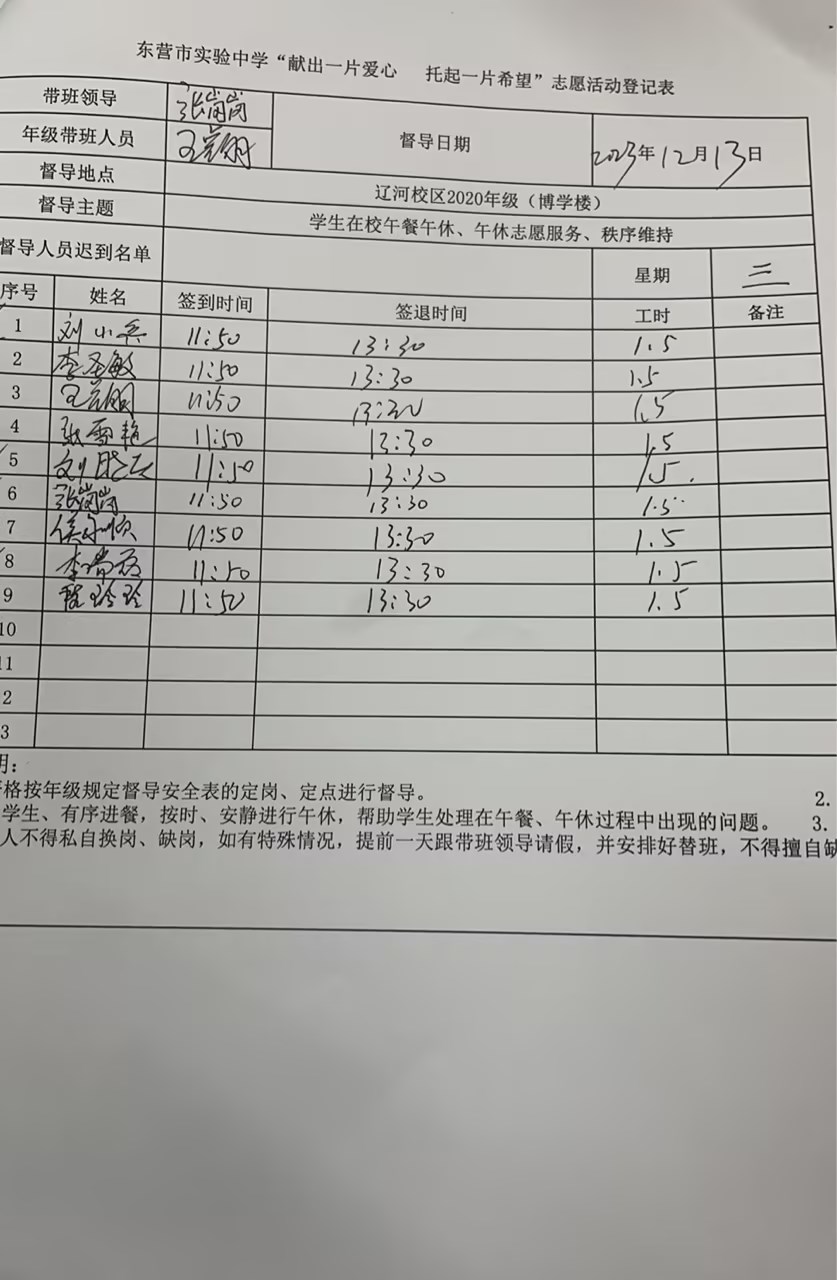 东营市实验中学“献出一片爱心 托起一片希望”志愿活动登记表
带班领导 张岗岗
年级带班人员 督导日期 2023年12月13日
督导地点 辽河校区2020年级（博学楼）
督导主题 学生在校午餐午休、午休志愿服务、秩序维持
督导人员迟到名单 星期 三
序号 姓名 签到时间 签退时间 工时 备注
1 刘小兵 11:50 13:30 1.5
2 李圣敏 11:50 13:30 1.5
3 11:50 13:30 1.5
4 张雪艳 11:50 13:30 1.5
5 11:50 13:30 1.5
6 张岗岗 11:50 13:30 1.5
7 11:50 13:30 1.5
8 11:50 13:30 1.5
9 玲玲 11:50 13:30 1.5
10
11
2
3
明：
格按年级规定督导安全表的定岗、定点进行督导。 2.
学生、有序进餐，按时、安静进行午休，帮助学生处理在午餐、午休过程中出现的问题。 3.
人不得私自换岗、缺岗，如有特殊情况，提前一天跟带班领导请假，并安排好替班，不得擅自缺